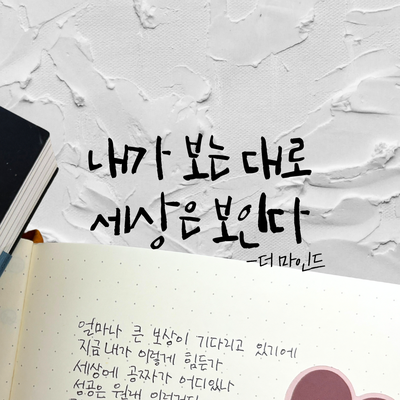 내가 보는 대로
세상은 보인다
-더 마인드
얼마나 큰 보상이 기다리고 있기에
지금 내가 이렇게 힘든가
세상에 공짜가 어디있나
성공은 원래 이런거다